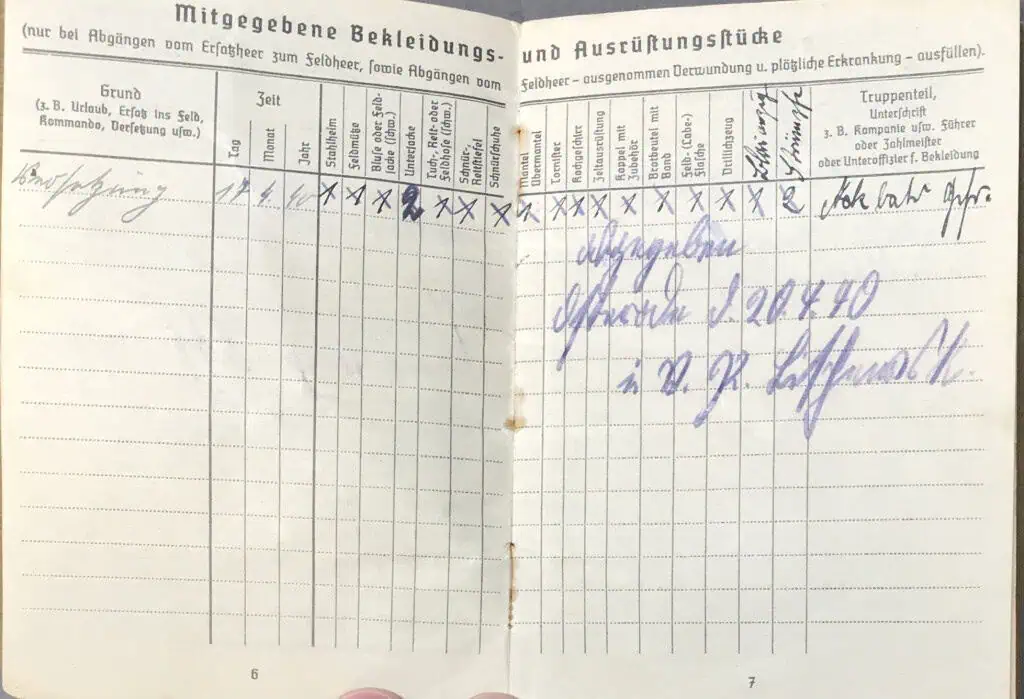 Mitgegebene Bekleidungs- und Ausrüstungsstücke
(nur bei Abgängen vom Ersatzheer zum Feldheer, sowie Abgängen vom Feldheer – ausgenommen Verwundung u. plötzliche Erkrankung – ausfüllen).
Grund
(z. B. Urlaub, Ersatz ins Feld,
Kommando, Versetzung usw.)
Zeit
Tag
Monat
Jahr
Stahlhelm
Feldmütze
Bluse oder Feld-
jacke (schw.)
Unterjacke
Tuch-, Reit- oder
Feldhose (schw.)
Schnür-,
Reitstiefel
Schnürschuhe
Mantel
Übermantel
Tornister
Kochgeschirr
Zeltausrüstung
Koppel mit
Zubehör
Brotbeutel mit
Band
Feld-(Labe-)
Flasche
Drillichzeug
Strümpfe
Truppenteil,
Unterschrift
z. B. Kompanie usw. Führer
oder Zahlmeister
oder Unteroffizier f. Bekleidung
Versetzung 17 4 40 x x x 2 x x x x x x x x x x x x 2
abgegeben
Osterode d. 20.4.40
6
7